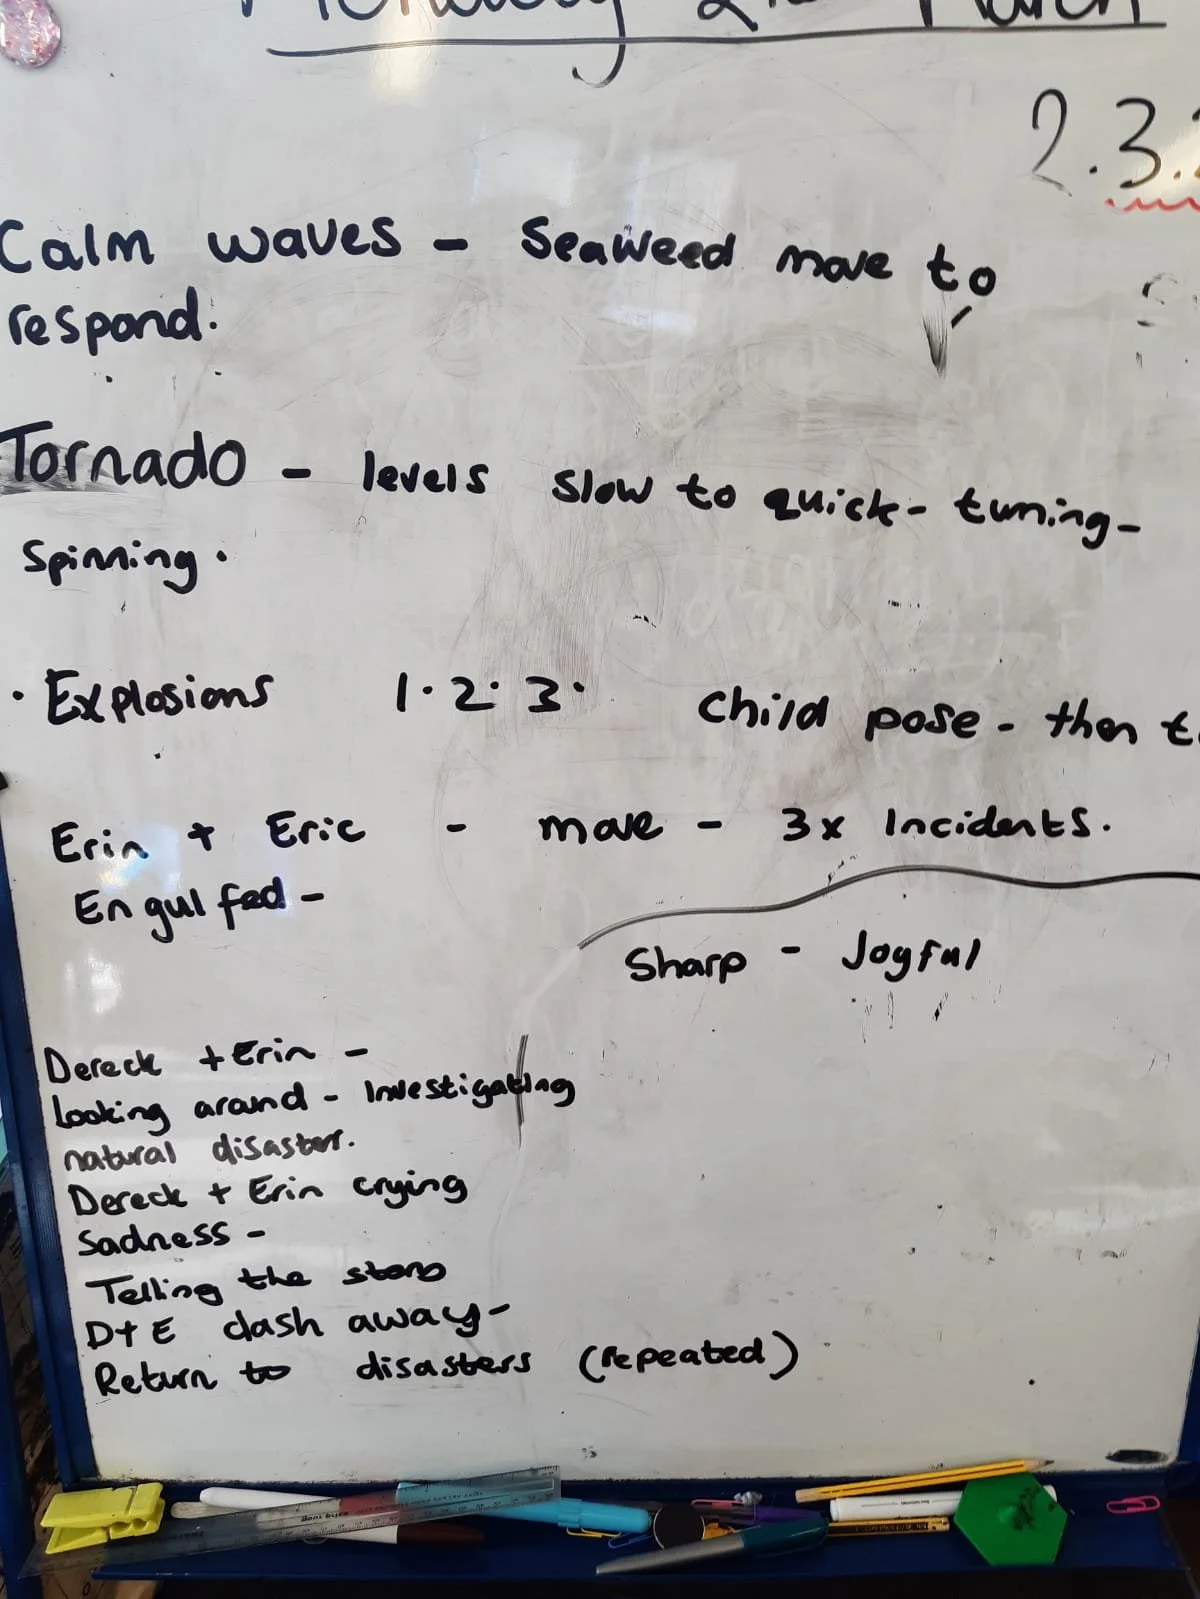 Monday 2nd March
2.3.
Calm waves - Seaweed move to
respond.
Tornado - levels slow to quick - turning -
Spinning.
· Explosions 1. 2. 3. Child pose - then
Erin + Eric - move - 3x Incidents.
Engulfed -
Sharp - Joyful
Dereck + Erin -
looking around - Investigating
natural disaster.
Dereck + Erin crying
Sadness -
Telling the story
D+E dash away -
Return to disasters (repeated)